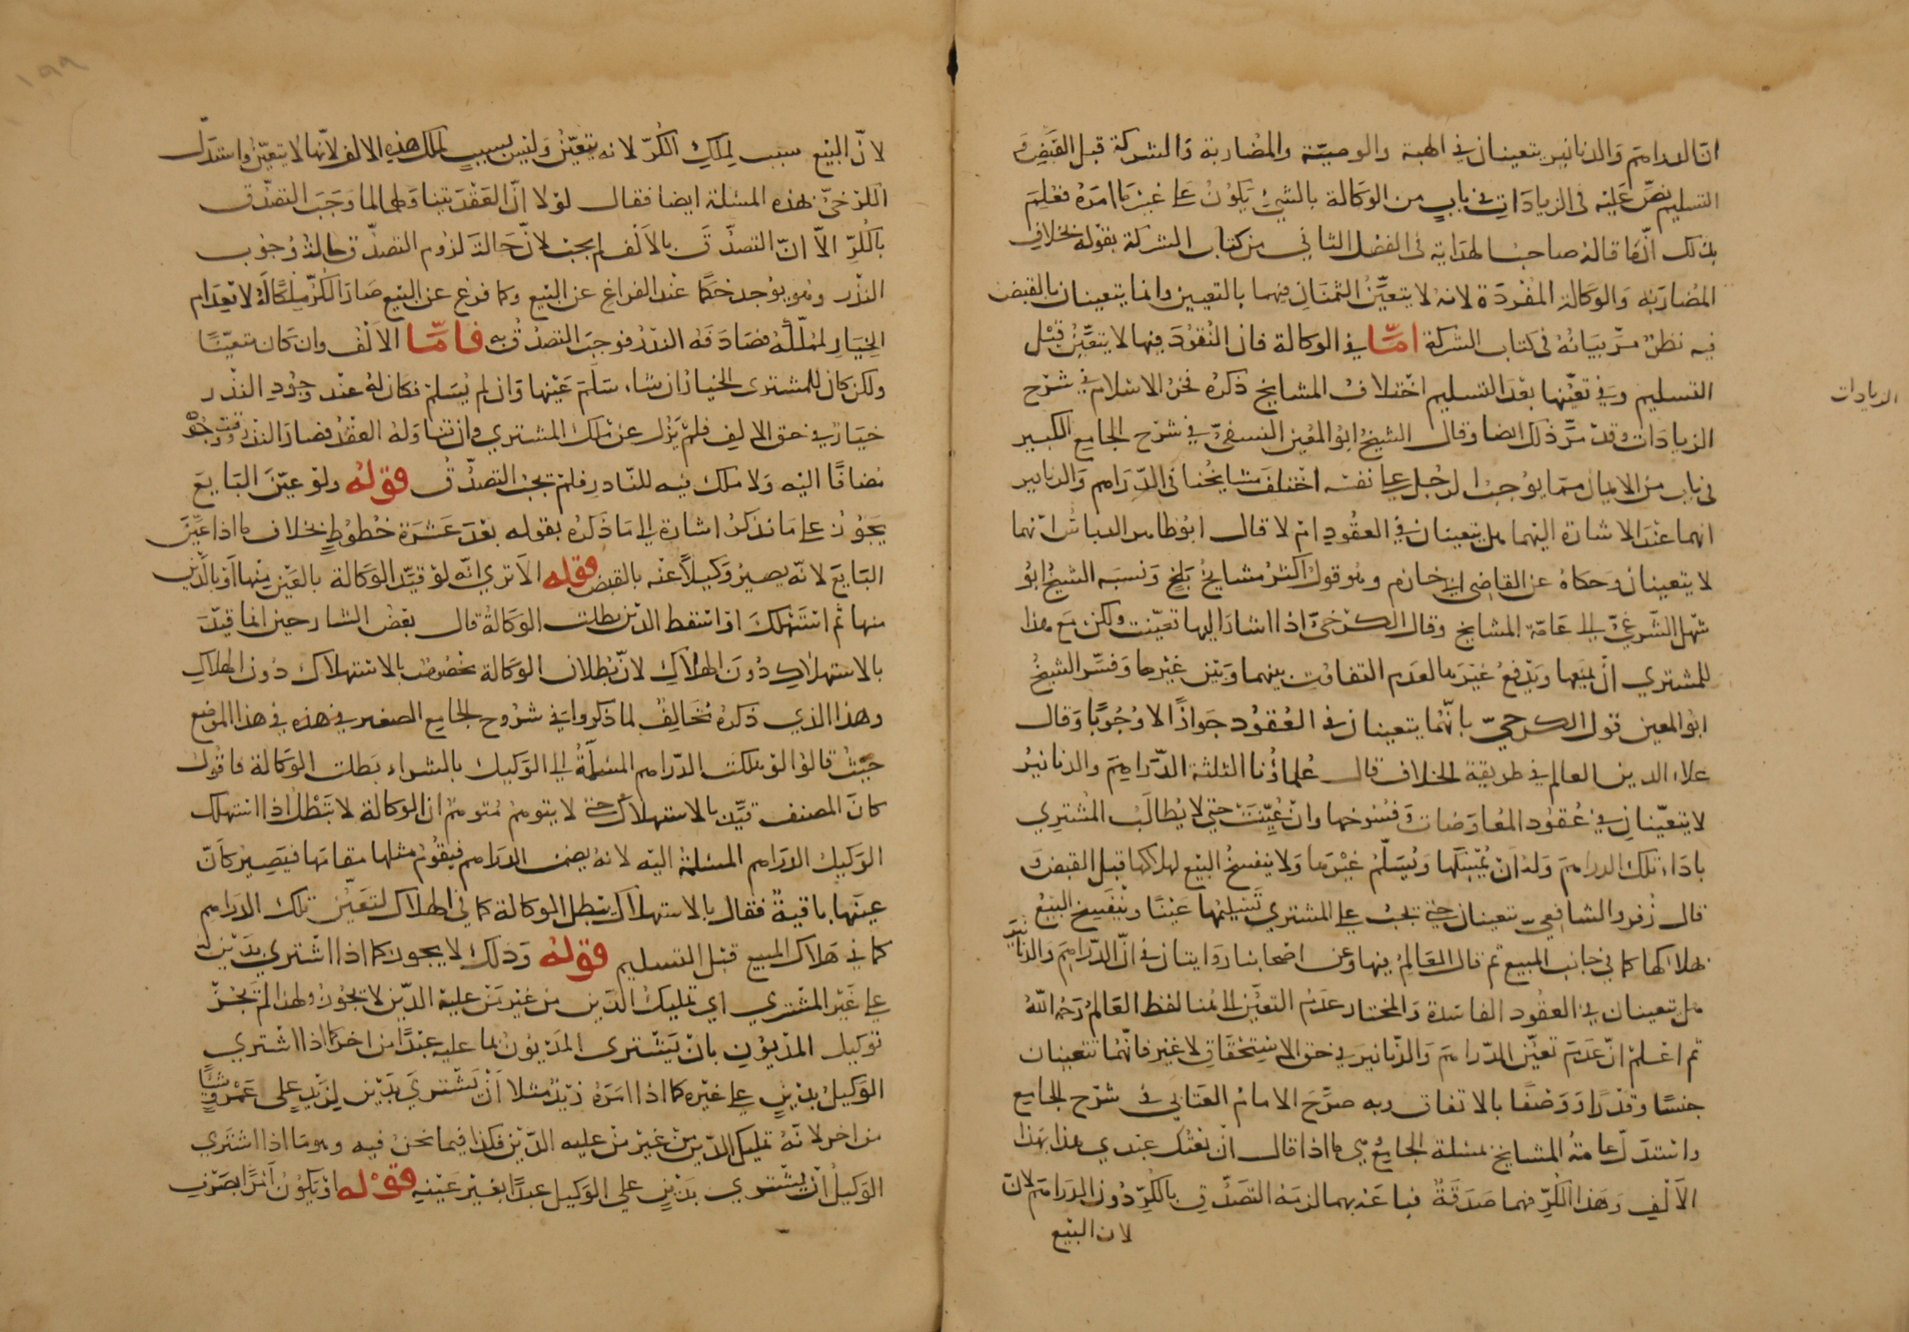 انّ الدراهم والدنانير يتعينان في الهبة والوصية والمضاربة والشركة قبل القبض و
التسليم نصّ عليه في الزيادات في باب من الوكالة بالشيء يكون على غير ما امره فعلم
بذلك انّ ما قاله صاحب الهداية في الفصل الثاني من كتاب الشركة بقوله بخلاف
المضاربة والوكالة المفردة لانه لا يتعيّن الثمنان فيهما بالتعيين وانما يتعينان بالقبض
فيه نظر مرّ بيانه في كتاب الشركة امّا في الوكالة فان النقود فيها لا يتعيّن قبل
التسليم وفي تعيّنها بعد التسليم اختلاف المشايخ ذكره فخر الاسلام في شرح
الزيادات
الزيادات وقد مرّ ذلك ايضا وقال الشيخ ابو المعين النسفيّ في شرح الجامع الكبير
في باب من الايمان مما يوجب الرجل على نفسه اختلف مشايخنا في الدّراهم والدنانير
انهما عند الاشارة اليهما هل يتعينان في العقود ام لا قال ابو طاهر الدباس انهما
لا يتعينان وحكاه عن القاضي ابي خازم وهو قول اكثر مشايخ بلخ ونسبه الشيخ ابو
سهل الشرغيّ الى عامّة المشايخ وقال الكرخيّ اذا اشار اليها تعيّنت ولكن مع هذا
للمشتري ان يمنعها ويدفع غيرها لعدم التفاوت بينهما وبين غيرها وفسّر الشيخ
ابو المعين قول الكرخيّ بانّهما يتعينان في العقود جوازًا لا وجوبًا وقال
علاء الدين العالم في طريقة الخلاف قال علماؤنا الثلثة الدّراهم والدنانير
لا يتعيّنان في عقود المعاوضات وفسوخها وان عيّنت حتى لا يطالب المشتري
باداء تلك الدراهم وله ان يمسكها ويسلّم غيرها ولا ينفسخ البيع لهلاكها قبل القبض و
قال زفر والشافعيّ يتعينان حتى يجب على المشتري تسليمها عينًا وينفسخ البيع
بهلاكها كما في جانب المبيع ثم قال العالم فيها وعن اصحابنا روايتان في انّ الدّراهم والدنانير
هل تتعينان في العقود الفاسدة والمختار عدم التعيّن الى هنا لفظ العالم رحمه الله
ثم اعلم انّ عدم تعيّن الدّراهم والدّنانير في حق الاستحقاق لا غير فانّهما تتعينان
جنسًا وقدرًا ووصفًا بالاتفاق وبه صرّح الامام العتابي في شرح الجامع
واستدلّ عامة المشايخ بمسئلة الجامع هي ما اذا قال ان بعتك عبدي هذا بهذا
الالف وهذا الكرّ فهما صدقةٌ فباعه بهما لزمه التصدّق بالكرّ دون الدراهم لانّ
لان البيع
لانّ البيع سبب لملك الكرّ لانه يتعيّن وليس بسبب لملك هذه الالف لانّها لا يتعيّن واستدلّ
الكرخيّ بهذه المسئلة ايضا فقال لولا انّ العقد يتناولهما لما وجب التصدّق
بالكرّ الاّ انّ التصدّق بالالف لم يجب لانّ حالة لزوم التصدّق حالة وجوب
النذر وهو يوجد حكما عند الفراغ عن البيع وكما فرغ عن البيع صار الكرّ ملكًا له لانعدام
الخيار لمملّكه فصادفه النذر فوجب التصدّق به فامّا الالف وان كان متعيّنًا
ولكن كان للمشتري الخيار ان شاء سلّم عينها وان لم يسلم فكان له عند وجود النذر
خيار في حق الالف فلم يزل عن ملك المشتري وان تناوله العقد فصار النذر وقت وجوده
مضافًا اليه ولا ملك فيه للنّاذر فلم يجب التصدّق قوله ولو عيّن البايع
يجوز على ما نذكر اشارة الى ما ذكره بقوله بعد عشرة خطوط بخلاف ما اذا عيّن
البايع لانّه يصير وكيلاً عنه بالقبض قوله الا ترى انّه لو قيّد الوكالة بالعين منها او بالدّين
منها ثم استهلك او اسقط الدّين بطلت الوكالة قال بعض الشارحين انما قيّد
بالاستهلاك دون الهلاك لانّ بطلان الوكالة مخصوص بالاستهلاك دون الهلاك
وهذا الذي ذكره مخالف لما ذكروا في شروح الجامع الصغير في هذه في هذا الموضع
حيث قالوا لو هلكت الدّراهم المسلّمة الى الوكيل بالشراء بطلت الوكالة فاقول
كان المصنف قيّد بالاستهلاك حتى لا يتوهم متوهم ان الوكالة لا تبطل اذا استهلك
الوكيل الدراهم المسلمة اليه لانه يضمن الدراهم فيقوم مثلها مقامها فيصير كانّ
عينها باقيةٌ فقال بالاستهلاك يبطل الوكالة كما في الهلاك لتعيّن تلك الدراهم
كما في هلاك المبيع قبل التسليم قوله وذلك لا يجوز كما اذا اشترى بدين
على غير المشتري اي تمليك الدّين من غير من عليه الدّين لا يجوز ولهذا لم يجز
توكيل المديون بان يشترى المديون بما عليه عبدًا من اخر كما اذا اشترى
الوكيل بدين على غيره كما اذا امره زيد مثلا ان يشتري بدين لزيد على عمرو شيئًا
من اخر لانّه تمليك الدّين من غير من عليه الدّين فكذا فيما نحن فيه وهو ما اذا اشترى
الوكيل ان يشتري بدين على الوكيل عبدًا بغير عينه قوله او يكون امرًا بصرف